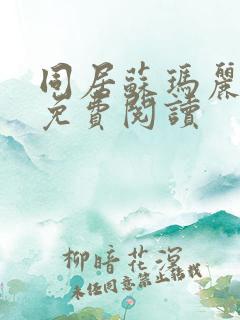 同居蘇瑪麗
免費閱讀
柳暗花溟
未經同意禁止轉載